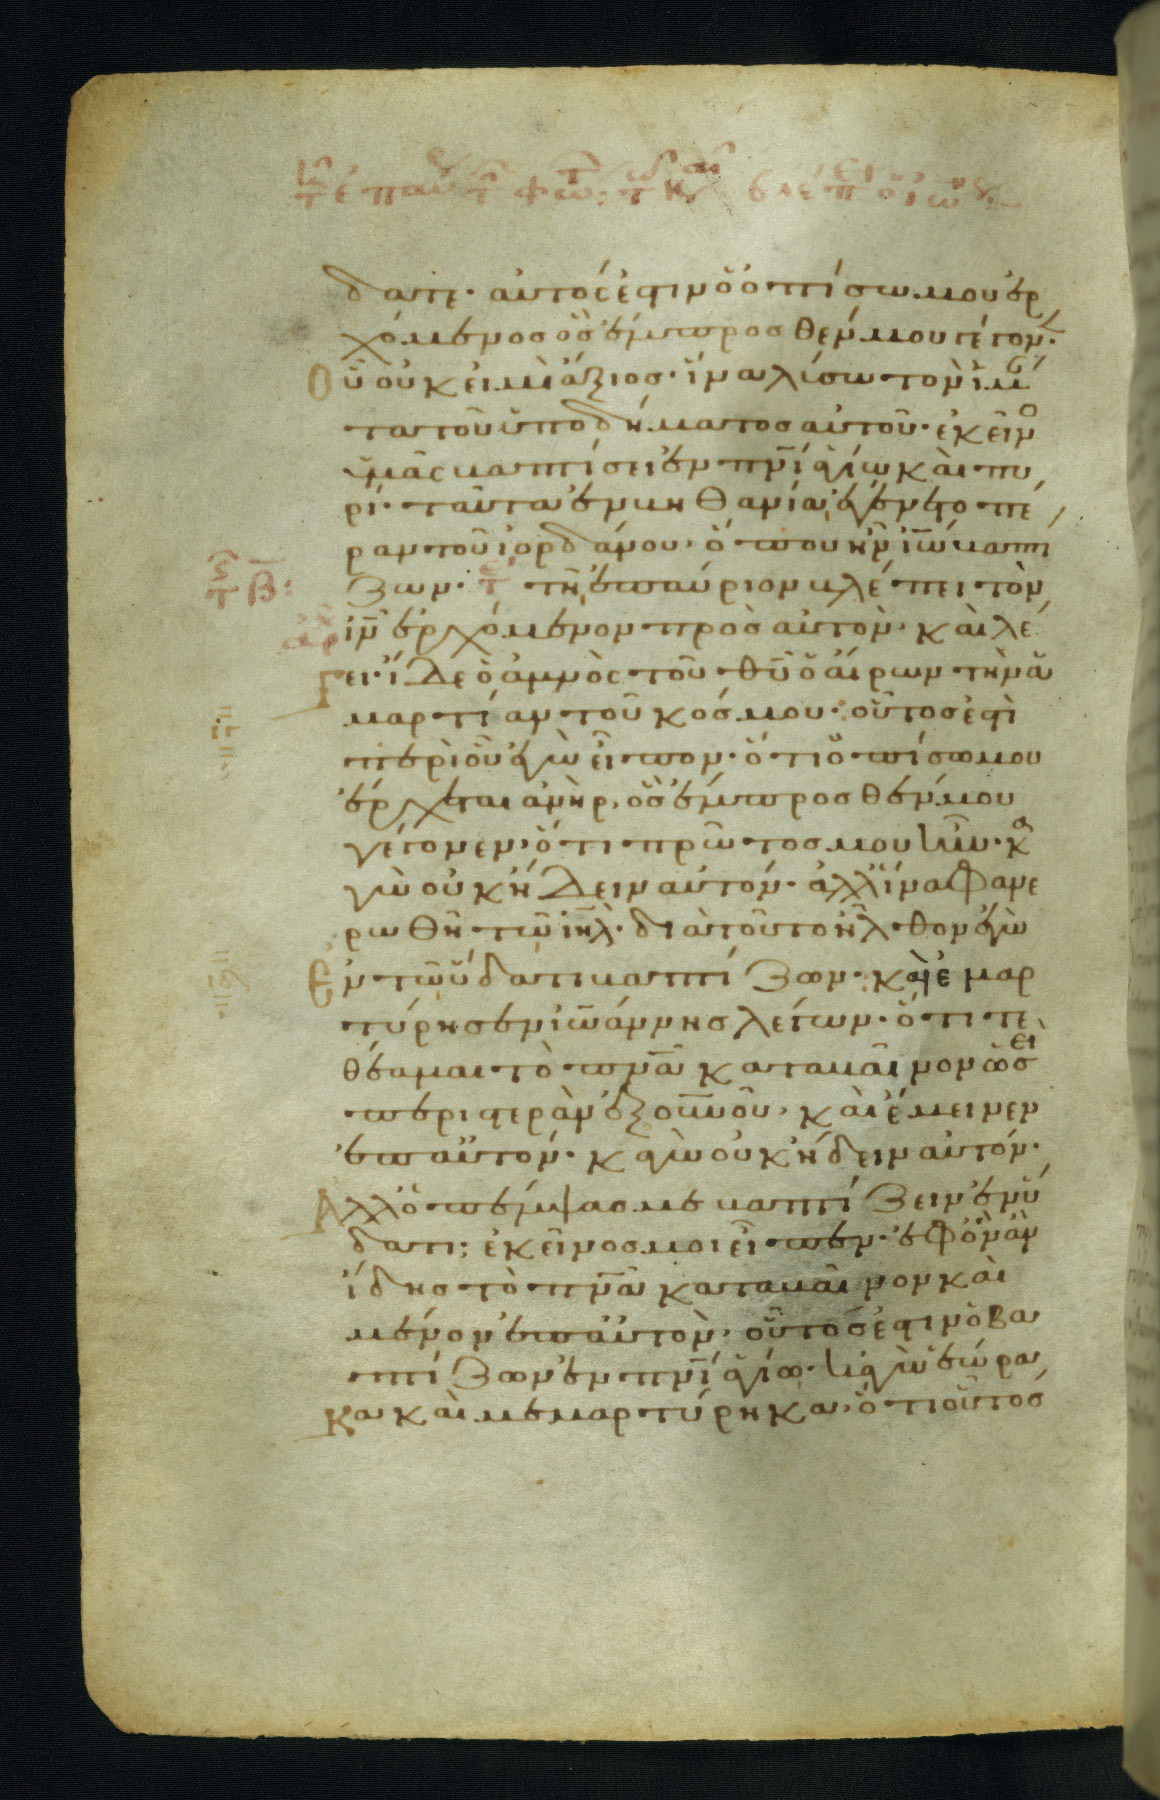 δατι· αὐτός ἐστιν ὁ ὀπίσω μου ἐρ
χόμενος ὃς ἔμπροσθέν μου γέγον·
Οὗ οὐκ εἰμὶ ἄξιος· ἵνα λύσω τὸν ἱμά
τα τοῦ ὑποδήματος αὐτοῦ· ἐκεῖνο
ὑμᾶς βαπτίσει ἐν πνι ἁγίω καὶ πυ
ρί· ταῦτα ἐν βηθανία ἐγένετο πέ
ραν τοῦ ἰορδάνου· ὅπου ἦν ἰω βαπτι
ζων· τῆ ἐπαύριον βλέπει τὸν
ιν ἐρχόμενον πρὸς αὐτὸν· καὶ λέ
Γει· ἴδε ὁ ἀμνὸς τοῦ θυ ὁ αἴρων τὴν ἁ
μαρτίαν τοῦ κόσμου· οὗτος ἐστὶ
περὶ οὗ ἐγὼ εἶπον· ὅτι ὀπίσω μου
ἔρχεται ἀνὴρ, ὃς ἔμπροσθέν μου
γέγονεν· ὅτι πρῶτος μου ἦν· κἀ
γὼ οὐκ ἤδειν αὐτόν· ἀλλ' ἵνα φανε
ρωθῆ τῶ ιηλ· διὰ τοῦτο ἦλθον ἐγὼ
Ἐν τῶ ὕδατι βαπτίζων· καὶ ἐμαρ
τύρησεν ἰωάννης λέγων· ὅτι τε
θέαμαι τὸ πνα καταβαῖνον ὡσεὶ
περιστερὰν ἐξ ουνου· καὶ ἔμεινεν
ἐπ' αὐτόν· κἀγὼ οὐκ ἤδειν αὐτόν·
Ἀλλ' ὁ πέμψας με βαπτίζειν ἐν ὕ
δατι· ἐκεῖνος μοι εἶπεν· ἐφ' ὃν ἂν
ἴδης τὸ πνα καταβαῖνον καὶ
μένον ἐπ' αὐτὸν· οὗτός ἐστιν ὁ βα
πτίζων ἐν πνι ἁγίω· κἀγὼ ἑώρα
Κα καὶ μεμαρτύρηκα, ὅτι οὗτος
β